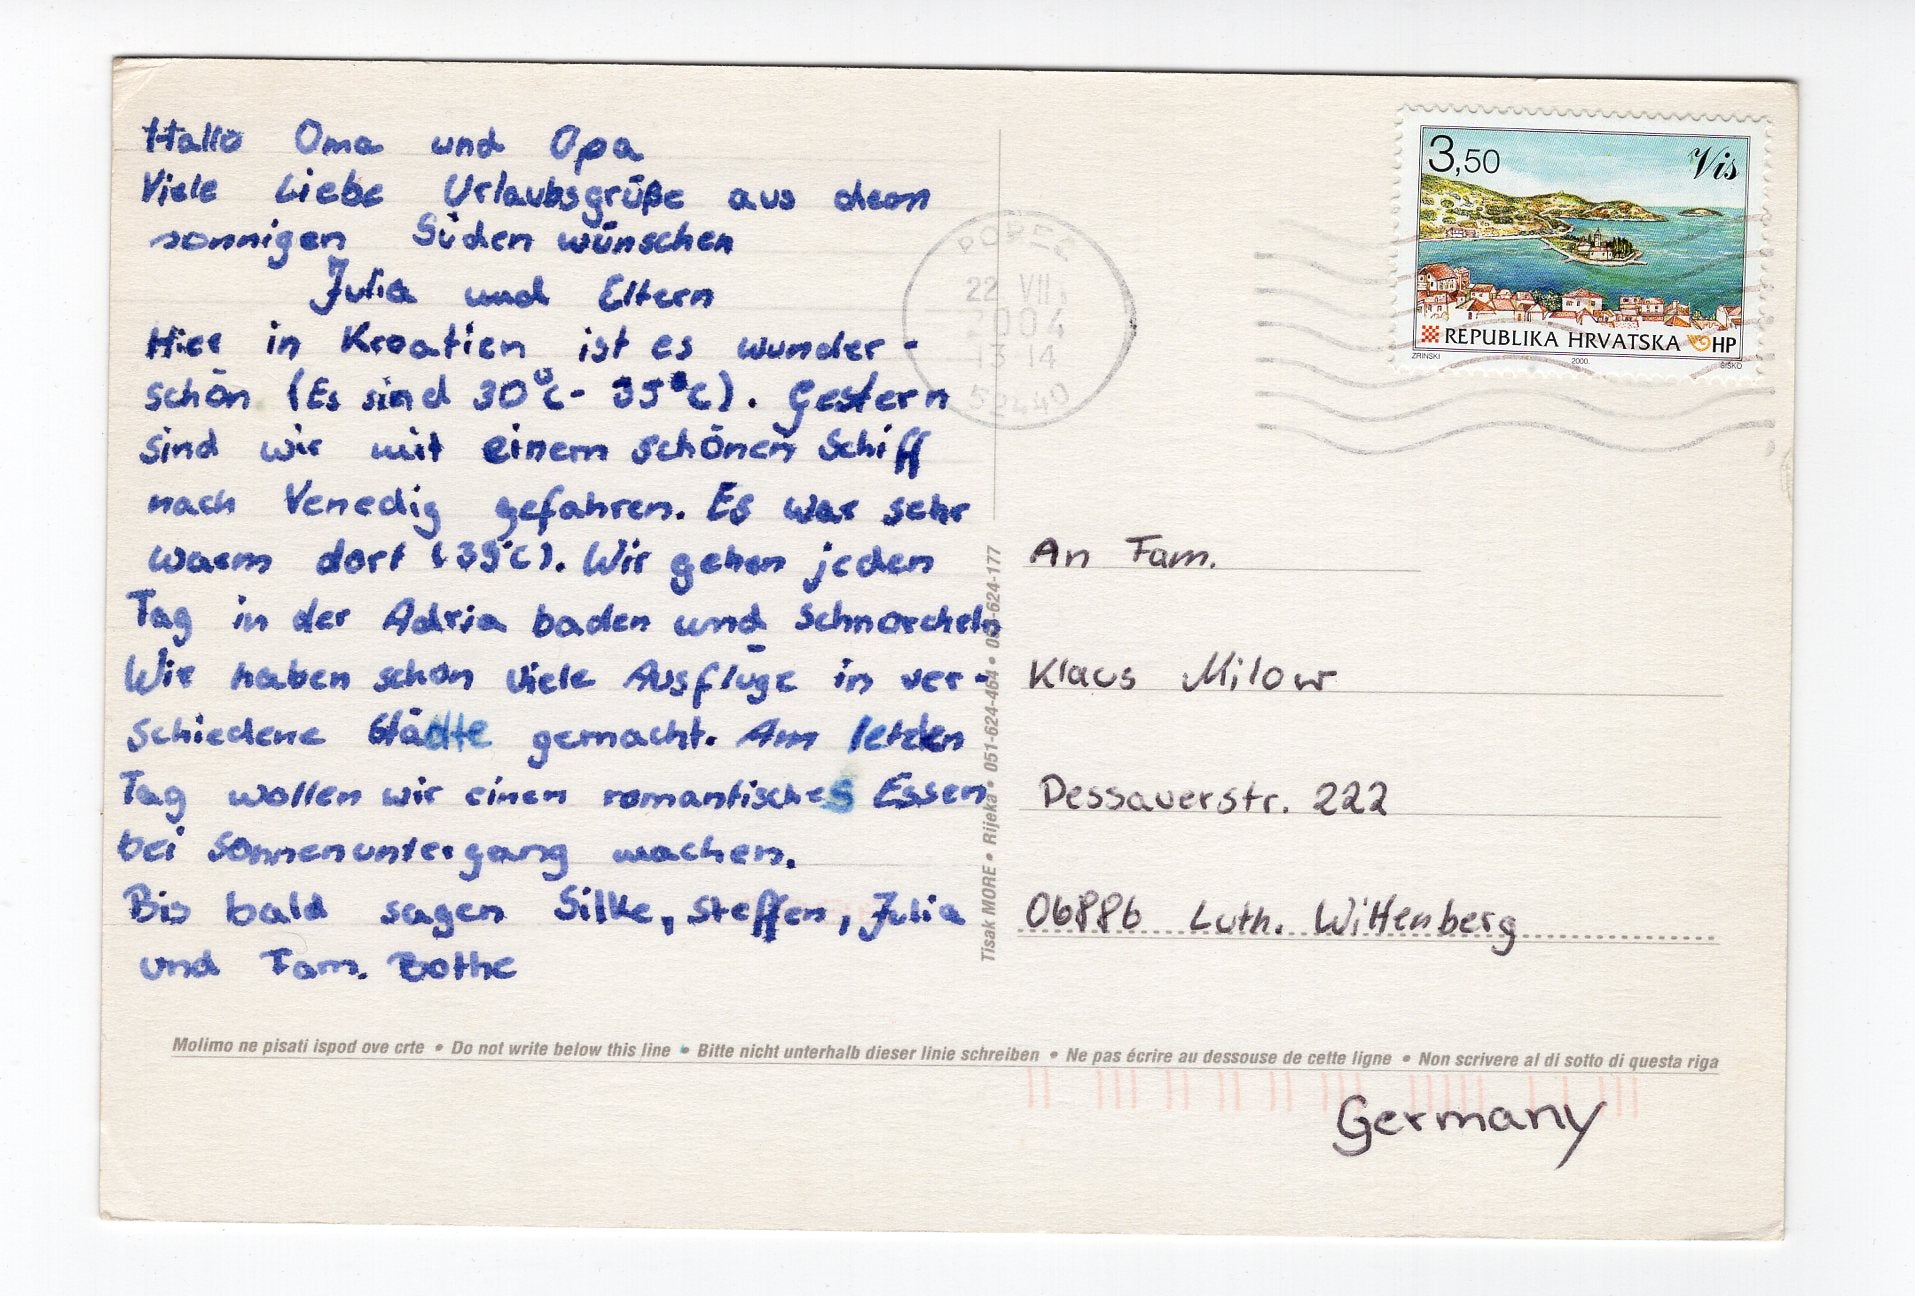 Hallo Oma und Opa
Viele Liebe Urlaubsgrüße aus dem
sonnigen Süden wünschen
Julia und Eltern
Hier in Kroatien ist es wunder-
schön (Es sind 30°C- 35°C). Gestern
sind wir mit einem schönen Schiff
nach Venedig gefahren. Es war sehr
warm dort (39°C). Wir gehen jeden
Tag in der Adria baden und schnorcheln
Wir haben schon viele Ausflüge in ver-
schiedene Städte gemacht. Am letzten
Tag wollen wir einen romantisches Essen
bei Sonnenuntergang machen.
Bis bald sagen Silke, Steffen, Julia
und Fam. Bothe
POREČ
22 VII
2004
13 14
52440
3,50
Vis
REPUBLIKA HRVATSKA HP
ZRINSKI 2000. ŠIŠKO
An Fam.
Klaus Milow
Dessauerstr. 222
06886 Luth. Wittenberg
Tisak MORE • Rijeka • 051-624-464 • 624-177
Molimo ne pisati ispod ove crte • Do not write below this line • Bitte nicht unterhalb dieser linie schreiben • Ne pas écrire au dessouse de cette ligne • Non scrivere al di sotto di questa riga
Germany